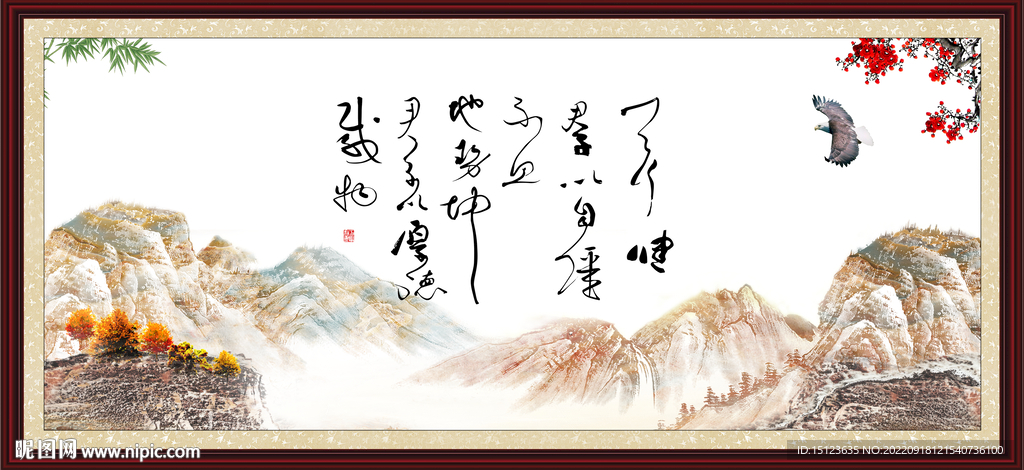 天行健
君子以自强
不息
地势坤
君子以厚德
载物
昵图网 www.nipic.com
ID:15123635 NO:20220918121540736100